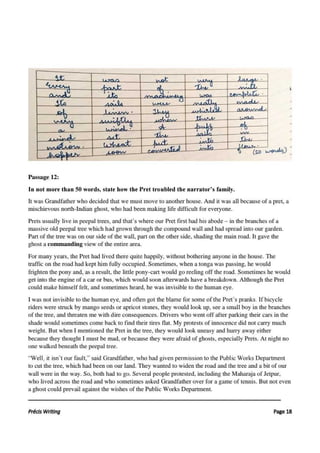 It was not very large.
Every part of the mill
and its machinery was complete.
Its sails were neatly made
of linen. They whirled around
very swiftly when there was
a wind. A puff of
wind set the sails in
motion. Wheat put into the
hopper soon converted into flour.
(50 words)
Passage 12:
In not more than 50 words, state how the Pret troubled the narrator's family.
It was Grandfather who decided that we must move to another house. And it was all because of a pret, a
mischievous north-Indian ghost, who had been making life difficult for everyone.
Prets usually live in peepal trees, and that's where our Pret first had his abode – in the branches of a
massive old peepal tree which had grown through the compound wall and had spread into our garden.
Part of the tree was on our side of the wall, part on the other side, shading the main road. It gave the
ghost a commanding view of the entire area.
For many years, the Pret had lived there quite happily, without bothering anyone in the house. The
traffic on the road had kept him fully occupied. Sometimes, when a tonga was passing, he would
frighten the pony and, as a result, the little pony-cart would go reeling off the road. Sometimes he would
get into the engine of a car or bus, which would soon afterwards have a breakdown. Although the Pret
could make himself felt, and sometimes heard, he was invisible to the human eye.
I was not invisible to the human eye, and often got the blame for some of the Pret's pranks. If bicycle
riders were struck by mango seeds or apricot stones, they would look up, see a small boy in the branches
of the tree, and threaten me with dire consequences. Drivers who went off after parking their cars in the
shade would sometimes come back to find their tires flat. My protests of innocence did not carry much
weight. But when I mentioned the Pret in the tree, they would look uneasy and hurry away either
because they thought I must be mad, or because they were afraid of ghosts, especially Prets. At night no
one walked beneath the peepal tree.
"Well, it isn't our fault," said Grandfather, who had given permission to the Public Works Department
to cut the tree, which had been on our land. They wanted to widen the road and the tree and a bit of our
wall were in the way. So, both had to go. Several people protested, including the Maharaja of Jetpur,
who lived across the road and who sometimes asked Grandfather over for a game of tennis. But not even
a ghost could prevail against the wishes of the Public Works Department.
Précis Writing Page 18